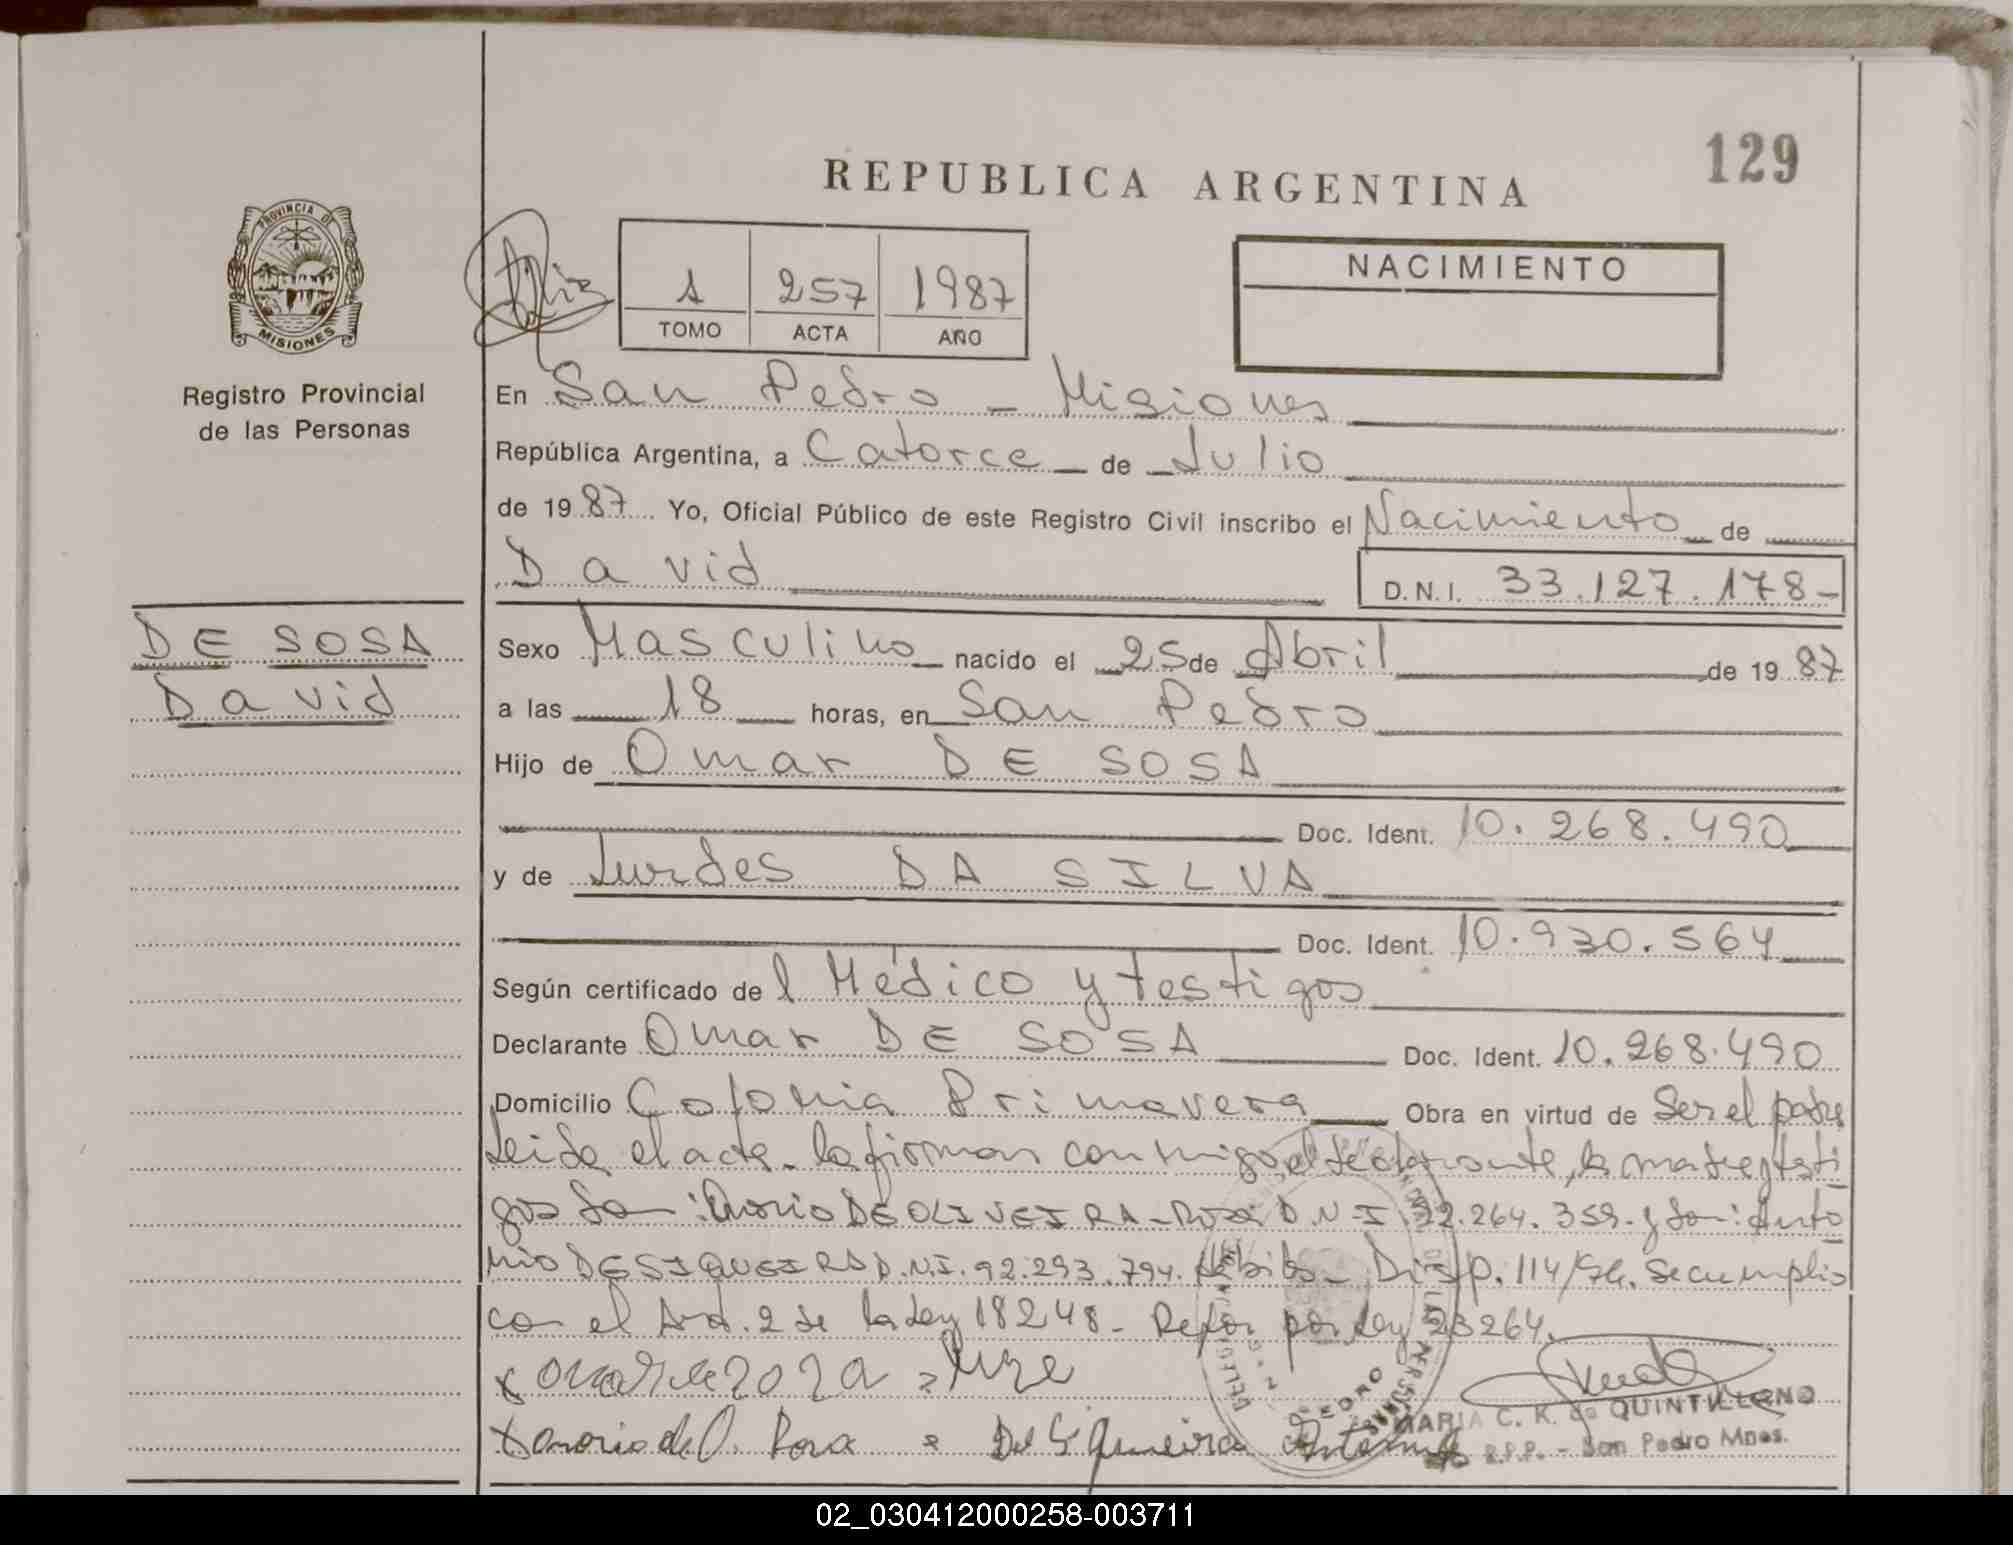 129
REPUBLICA ARGENTINA
PROVINCIA DE
MISIONES
Registro Provincial
de las Personas
1 257 1987
TOMO ACTA AÑO
NACIMIENTO
En San Pedro - Misiones
República Argentina, a Catorce de Julio
de 1987 Yo, Oficial Público de este Registro Civil inscribo el Nacimiento de
David
D.N.I. 33.127.178-
DE SOSA
David
Sexo Masculino nacido el 25 de Abril de 1987
a las 18 horas, en San Pedro
Hijo de Omar DE SOSA
Doc. Ident. 10.268.490
y de Lurdes DA SILVA
Doc. Ident. 10.930.564
Según certificado del Médico y testigos
Declarante Omar DE SOSA Doc. Ident. 10.268.490
Domicilio Colonia Primavera Obra en virtud de Ser el padre
Leida el acta la firman conmigo, el declarante, la madre y testi
gos DE OLIVEIRA D.N.I. .264.359. y Anto
nio DE SIQUEIRA D.N.I. 92.293.794. Disp. 114/ Se cumplio
con el Art. 2 de la Ley 18248- por Ley 23264.
MARIA C. K. de QUINTILLANO
R.P.P. - San Pedro Mnes.
02_030412000258-003711